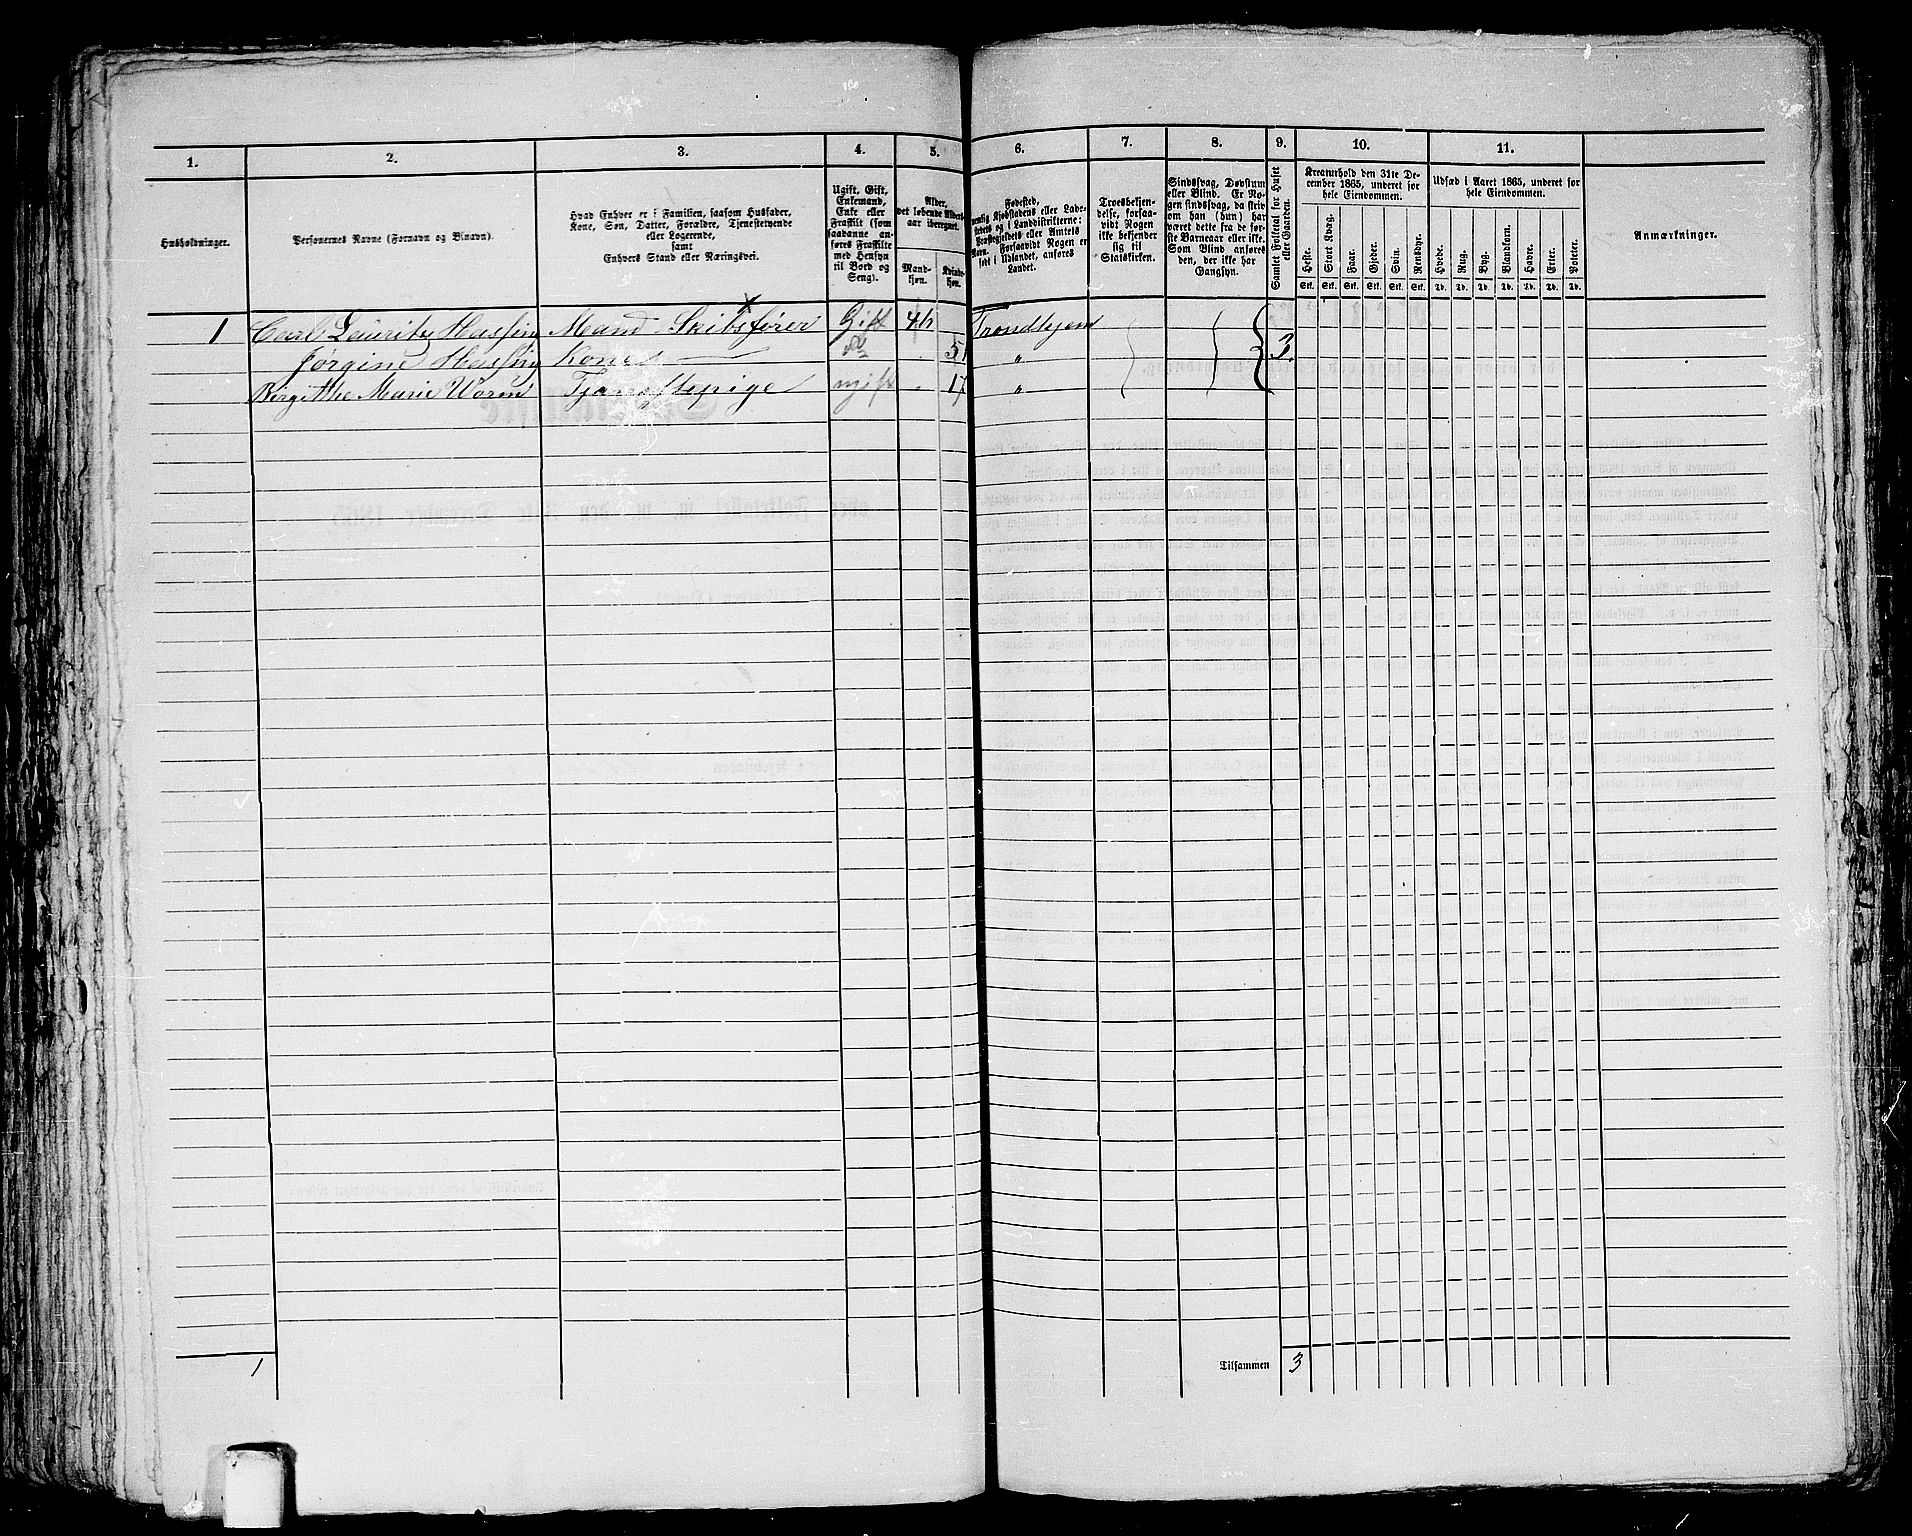 1. 2. 3. 4. 5. 6. 7. 8. 9. 10. 11.
Husholdninger.
Personernes Navne (Fornavn og Binavn).
Hvad Enhver er i Familien, saasom Husfader,
Kone, Søn, Datter, Forældre, Tjenestetyende
eller Logerende,
samt
Enhvers Stand eller Næringsvei.
Ugift, Gift,
Enkemand,
Enke eller
Fraskilt (som
saadanne an-
føres Fraskilte
med Hensyn
til Bord og
Seng).
Alder,
det løbende Alders-
aar iberegnet.
Mand-
kjøn.
Kvinde-
kjøn.
Fødested,
nemlig Kjøbstadens eller Lade-
stedets og i Landdistrikterne:
Præstegjeldets eller Amtets
Navn. Forsaavidt Nogen er
født i Udlandet, anføres
Landet.
Troesbekjen-
delse, forsaa-
vidt Nogen
ikke bekjender
sig til
Statskirken.
Sindssvag, Døvstum
eller Blind. Er No-
gen sindssvag, da skriv
om han (hun) har
været dette fra de før-
ste Barneaar eller ikke.
Som Blind anføres
den, der ikke har
Gangsyn.
Samlet Folketal for Huset
eller Gaarden.
Kreaturhold den 31te De-
cember 1865, underet for
hele Eiendommen.
Heste. Stort Kvæg. Faar. Gjeder. Svin. Rensdyr.
Stk. Stk. Stk. Stk. Stk. Stk.
Udsæd i Aaret 1865, underet for
hele Eiendommen.
Hvede. Rug. Byg. Blandkorn. Havre. Erter. Poteter.
Td. Td. Td. Td. Td. Td. Td.
Anmærkninger.
1 Carl Lauritz Hassing Mand Skibsfører Gift 46 Trondhjem
Jørgine Hassing Kone 51 " 3.
Birgitthe Marie Worm Tjenestepige ugift 17 "
1 Tilsammen 3